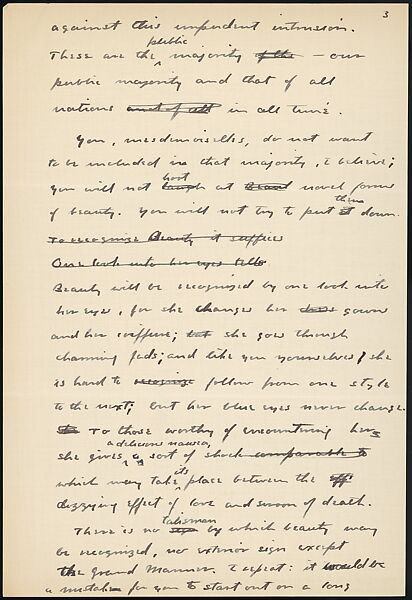 3
against this impudent intrusion.
These are the public majority of the — our
public majority and that of all
nations and of all in all time.
You, mesdemoiselles, do not want
to be included in that majority, I believe;
you will not hoot at novel forms
of beauty. You will not try to put them down.
To recognize Beauty it suffices
One look into her eyes tells
Beauty will be recognized by one look into
her eyes, for she changes her gown
and her coiffure; but she goes through
charming fads; and like you yourselves, she
is hard to recognize follow from one style
to the next; but her blue eyes never change.
To those worthy of encountering her,
she gives a delicious nausea, a sort of shock comparable to
which may take its place between the
dizzying effect of love and swoon of death.
There is no sign talisman by which beauty may
be recognized, no exterior sign except
the Grand Manner. I repeat: it would be
a mistake for you to start out on a long